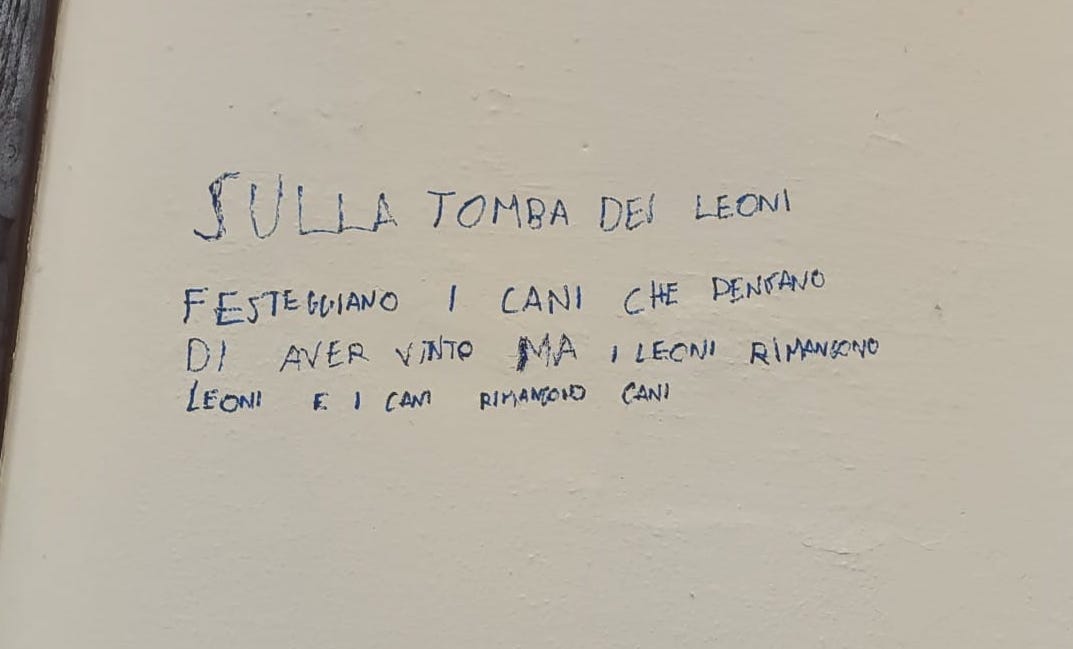 SULLA TOMBA DEI LEONI
FESTEGGIANO I CANI CHE PENSANO
DI AVER VINTO MA I LEONI RIMANGONO
LEONI E I CANI RIMANGONO CANI